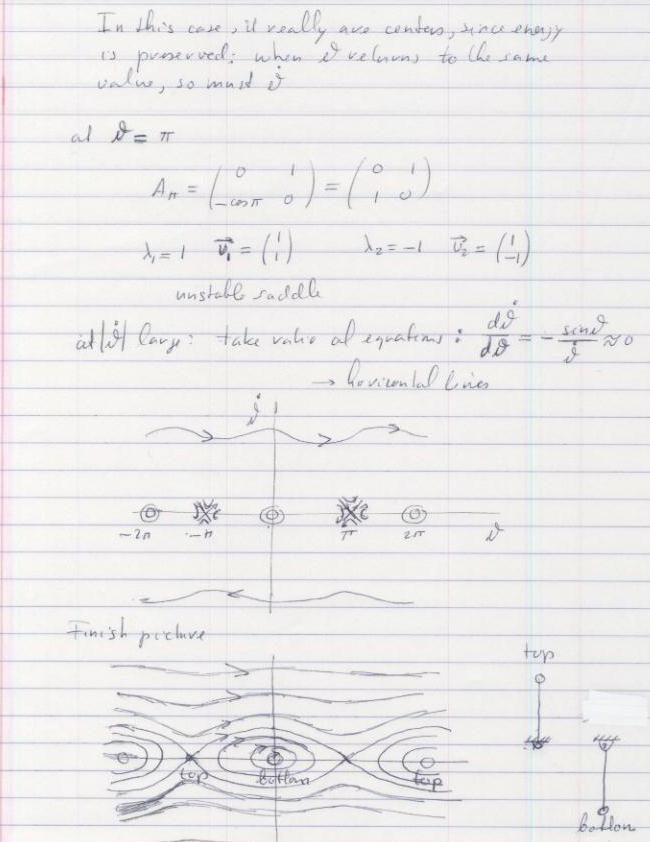 In this case, it really are centers, since energy
is preserved: when ϑ returns to the same
value, so must ϑ̇
at ϑ = π
A_π = ( 0 1 ; -cosπ 0 ) = ( 0 1 ; 1 0 )
λ₁ = 1 v⃗₁ = ( 1 ; 1 ) λ₂ = -1 v⃗₂ = ( 1 ; -1 )
unstable saddle
at |ϑ̇| large: take ratio of equations: dϑ̇/dϑ = - sinϑ/ϑ̇ ≈ 0
→ horizontal lines
ϑ̇
-2π -π π 2π ϑ
Finish picture
top
top bottom top
bottom